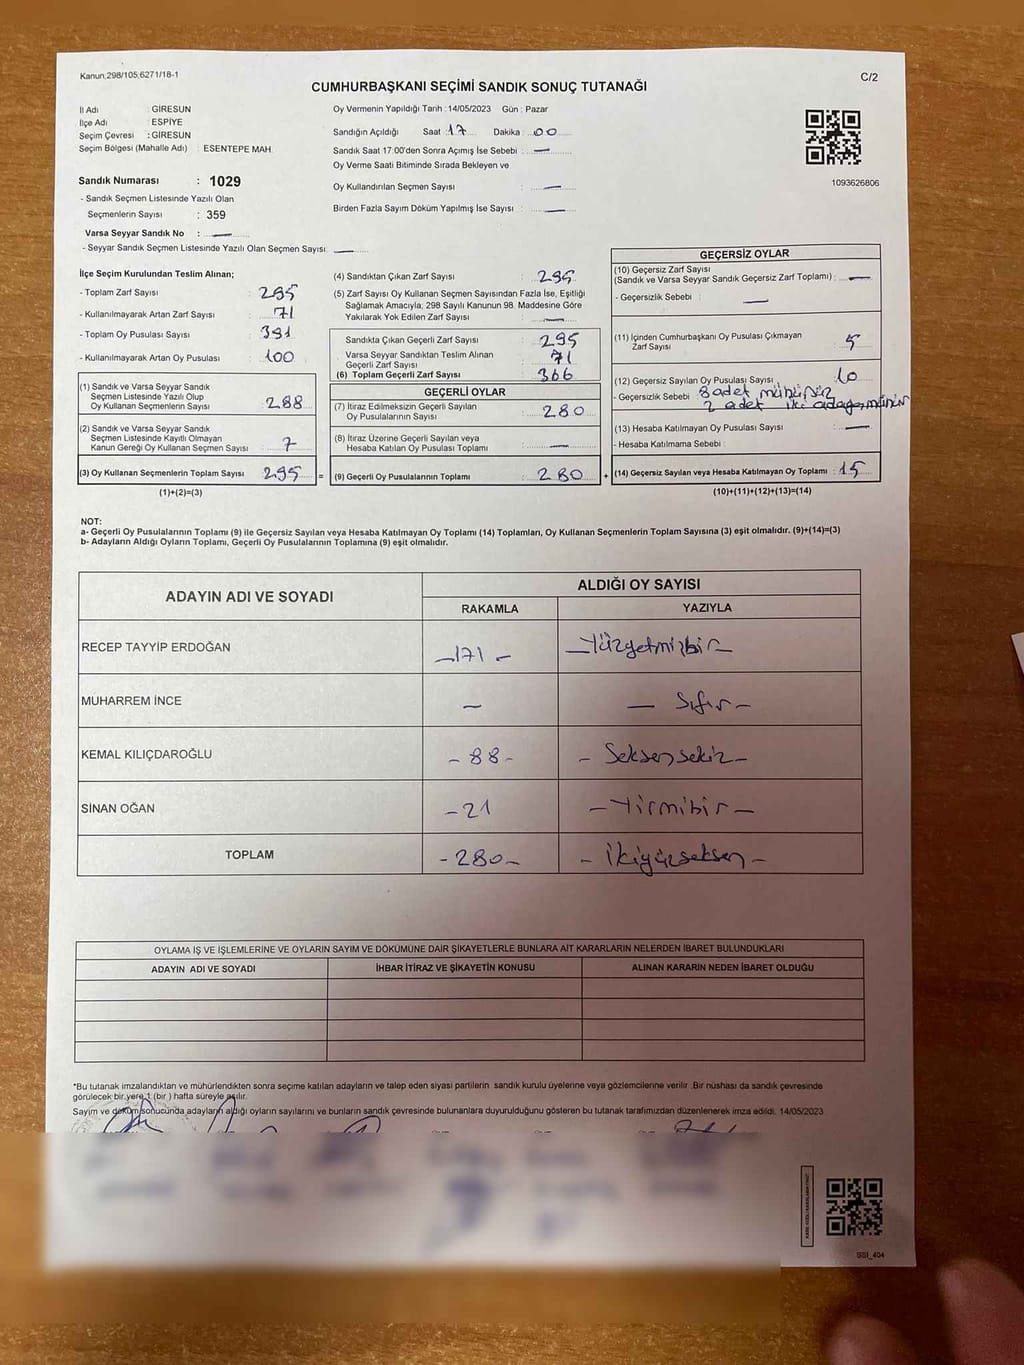 Kanun;298/105;6271/18-1
C/2
CUMHURBAŞKANI SEÇİMİ SANDIK SONUÇ TUTANAĞI
İl Adı : GİRESUN
İlçe Adı : ESPİYE
Seçim Çevresi : GİRESUN
Seçim Bölgesi (Mahalle Adı) : ESENTEPE MAH.
Sandık Numarası : 1029
- Sandık Seçmen Listesinde Yazılı Olan
Seçmenlerin Sayısı : 359
Varsa Seyyar Sandık No : —
- Seyyar Sandık Seçmen Listesinde Yazılı Olan Seçmen Sayısı: —
Oy Vermenin Yapıldığı Tarih : 14/05/2023 Gün : Pazar
Sandığın Açıldığı Saat : 17 Dakika : 00
Sandık Saat 17:00'den Sonra Açımış İse Sebebi : —
Oy Verme Saati Bitiminde Sırada Bekleyen ve
Oy Kullandırılan Seçmen Sayısı : —
Birden Fazla Sayım Döküm Yapılmış İse Sayısı : —
1093626806
İlçe Seçim Kurulundan Teslim Alınan;
- Toplam Zarf Sayısı : 295
- Kullanılmayarak Artan Zarf Sayısı : 71
- Toplam Oy Pusulası Sayısı : 391
- Kullanılmayarak Artan Oy Pusulası : 100
(1) Sandık ve Varsa Seyyar Sandık
Seçmen Listesinde Yazılı Olup
Oy Kullanan Seçmenlerin Sayısı : 288
(2) Sandık ve Varsa Seyyar Sandık
Seçmen Listesinde Kayıtlı Olmayan
Kanun Gereği Oy Kullanan Seçmen Sayısı : 7
(3) Oy Kullanan Seçmenlerin Toplam Sayısı : 295 =
(1)+(2)=(3)
(4) Sandıktan Çıkan Zarf Sayısı : 295
(5) Zarf Sayısı Oy Kullanan Seçmen Sayısından Fazla İse, Eşitliği
Sağlamak Amacıyla, 298 Sayılı Kanunun 98. Maddesine Göre
Yakılarak Yok Edilen Zarf Sayısı : —
Sandıkta Çıkan Geçerli Zarf Sayısı : 295
Varsa Seyyar Sandıktan Teslim Alınan
Geçerli Zarf Sayısı : 71
(6) Toplam Geçerli Zarf Sayısı : 366
GEÇERLİ OYLAR
(7) İtiraz Edilmeksizin Geçerli Sayılan
Oy Pusulalarının Sayısı : 280
(8) İtiraz Üzerine Geçerli Sayılan veya
Hesaba Katılan Oy Pusulası Toplamı : —
(9) Geçerli Oy Pusulalarının Toplamı : 280 +
GEÇERSİZ OYLAR
(10) Geçersiz Zarf Sayısı
(Sandık ve Varsa Seyyar Sandık Geçersiz Zarf Toplamı) : —
- Geçersizlik Sebebi : —
(11) İçinden Cumhurbaşkanı Oy Pusulası Çıkmayan
Zarf Sayısı : 5
(12) Geçersiz Sayılan Oy Pusulası Sayısı : 10
- Geçersizlik Sebebi : 8 adet mühürsüz
2 adet iki adaya mühür
(13) Hesaba Katılmayan Oy Pusulası Sayısı : —
- Hesaba Katılmama Sebebi :
(14) Geçersiz Sayılan veya Hesaba Katılmayan Oy Toplamı : 15
(10)+(11)+(12)+(13)=(14)
NOT:
a- Geçerli Oy Pusulalarının Toplamı (9) ile Geçersiz Sayılan veya Hesaba Katılmayan Oy Toplamı (14) Toplamları, Oy Kullanan Seçmenlerin Toplam Sayısına (3) eşit olmalıdır. (9)+(14)=(3)
b- Adayların Aldığı Oyların Toplamı, Geçerli Oy Pusulalarının Toplamına (9) eşit olmalıdır.
ADAYIN ADI VE SOYADI
ALDIĞI OY SAYISI
RAKAMLA YAZIYLA
RECEP TAYYİP ERDOĞAN –171– –Yüzyetmişbir–
MUHARREM İNCE – – Sıfır –
KEMAL KILIÇDAROĞLU – 88 – – Seksensekiz –
SİNAN OĞAN – 21 – Yirmibir –
TOPLAM - 280 - – İkiyüzseksen –
OYLAMA İŞ VE İŞLEMLERİNE VE OYLARIN SAYIM VE DÖKÜMÜNE DAİR ŞİKAYETLERLE BUNLARA AİT KARARLARIN NELERDEN İBARET BULUNDUKLARI
ADAYIN ADI VE SOYADI İHBAR İTİRAZ VE ŞİKAYETİN KONUSU ALINAN KARARIN NEDEN İBARET OLDUĞU
*Bu tutanak imzalandıktan ve mühürlendikten sonra seçime katılan adayların ve talep eden siyasi partilerin sandık kurulu üyelerine veya gözlemcilerine verilir .Bir nüshası da sandık çevresinde
görülecek bir yere 1 (bir ) hafta süreyle asılır.
Sayım ve döküm sonucunda adayların aldığı oyların sayılarını ve bunların sandık çevresinde bulunanlara duyurulduğunu gösteren bu tutanak tarafımızdan düzenlenerek imza edildi. 14/05/2023
SSI_404